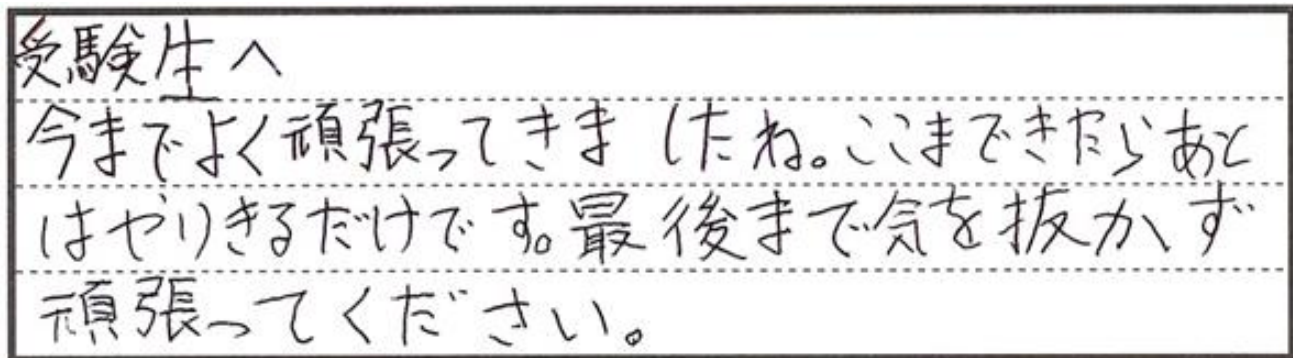 受験生へ
今までよく頑張ってきましたね。ここまできたらあと
はやりきるだけです。最後まで気を抜かず
頑張ってください。